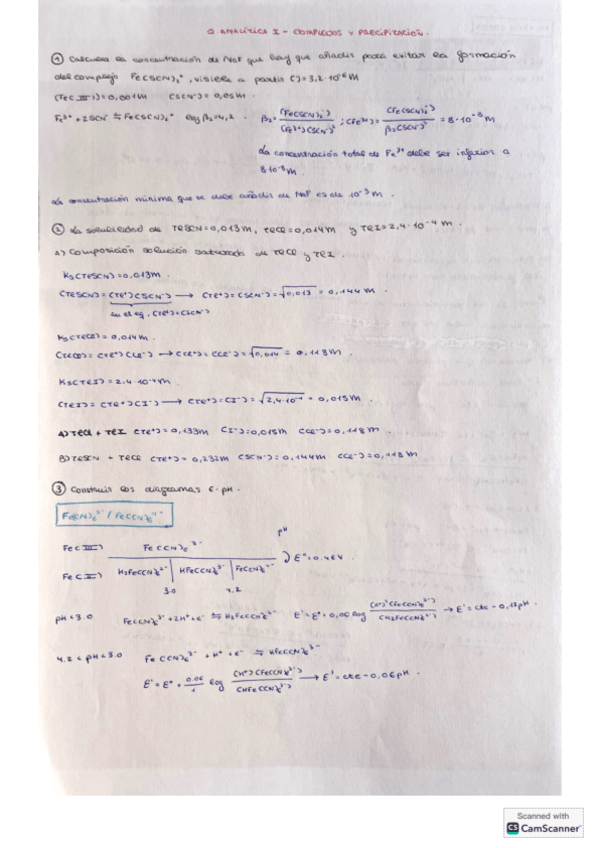 Q. ANALÍTICA I - COMPLEJOS Y PRECIPITACIÓN.
① Calcula la concentración de NaF que hay que añadir para evitar la formación
del complejo Fe(SCN)₂⁺, visible a partir C)=3,2·10⁻⁶M
(Fe(III))=0,001M (SCN⁻)=0,05M.
Fe³⁺+2SCN⁻ ⇆ Fe(SCN)₂⁺ log β₂=4,2. β₂= (Fe(SCN)₂⁺) / (Fe³⁺)(SCN⁻)² ; (Fe³⁺)= (Fe(SCN)₂⁺) / β₂(SCN⁻)² = 8·10⁻⁸M
La concentración total de Fe³⁺ debe ser inferior a
8·10⁻⁸M.
La concentración mínima que se debe añadir de NaF es de 10⁻³M.
② La solubilidad de TlSCN=0,013M, TlCl=0,014M y TlI=2,4·10⁻⁴M.
A) Composición solución saturada de TlCl y TlI.
Ks(TlSCN)=0,013M.
(TlSCN)=(Tl⁺)(SCN⁻) → (Tl⁺)=(SCN⁻)=√0,013 = 0,144M.
en el eq, (Tl⁺)=(SCN⁻)
Ks(TlCl)=0,014M.
(TlCl)=(Tl⁺)(Cl⁻) → (Tl⁺)=(Cl⁻)=√0,014 = 0,118M
Ks(TlI)=2,4·10⁻⁴M.
(TlI)=(Tl⁺)(I⁻) → (Tl⁺)=(I⁻)=√2,4·10⁻⁴ = 0,015M.
A) TlCl + TlI (Tl⁺)=0,133M (I⁻)=0,015M (Cl⁻)=0,118M.
B) TlSCN + TlCl (Tl⁺)=0,232M (SCN⁻)=0,144M (Cl⁻)=0,118M
③ Construir los diagramas E-pH.
Fe(CN)₆³⁻ / Fe(CN)₆⁴⁻
pH
Fe(III) Fe(CN)₆³⁻
E°=0.464
Fe(II) H₂Fe(CN)₆²⁻ | HFe(CN)₆³⁻ | Fe(CN)₆⁴⁻
3.0 4.2
pH<3.0 Fe(CN)₆³⁻+2H⁺+e⁻ ⇆ H₂Fe(CN)₆²⁻ E'=E°+0,06 log (H⁺)²(Fe(CN)₆³⁻) / (H₂Fe(CN)₆²⁻) → E'=cte-0,12pH.
4.2<pH<3.0 Fe(CN)₆³⁻ + H⁺ + e⁻ ⇆ HFe(CN)₆³⁻
E'=E°+ 0.06/1 log (H⁺)(Fe(CN)₆³⁻) / (HFe(CN)₆³⁻) → E'=cte-0,06pH.
Scanned with
CS CamScanner